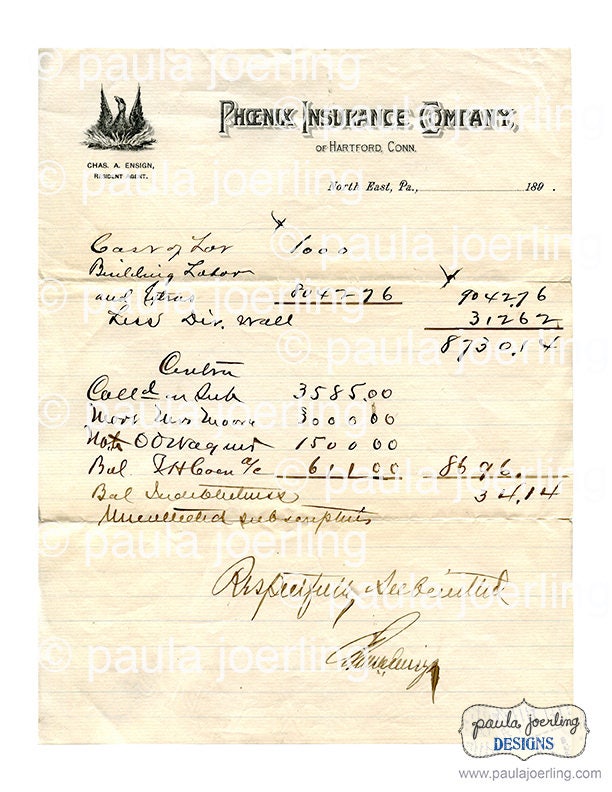 © paula joerling
PHOENIX INSURANCE COMPANY,
OF HARTFORD, CONN.
CHAS. A. ENSIGN,
RESIDENT AGENT.
North East, Pa., 189 .
Cost of Lot 1000
Building Labor
and Extras 8042.76 9042.76
Less Div. Wall 312.62
8730.14
Contra
Calld in Sub 3585.00
Mort Mrs Moore 3000.00
Note 1500.00
Bal a/c 611.00 8696.
Bal Indebtedness 34.14
Uncollected subscriptions
Respectfully Submitted
paula joerling
DESIGNS
www.paulajoerling.com